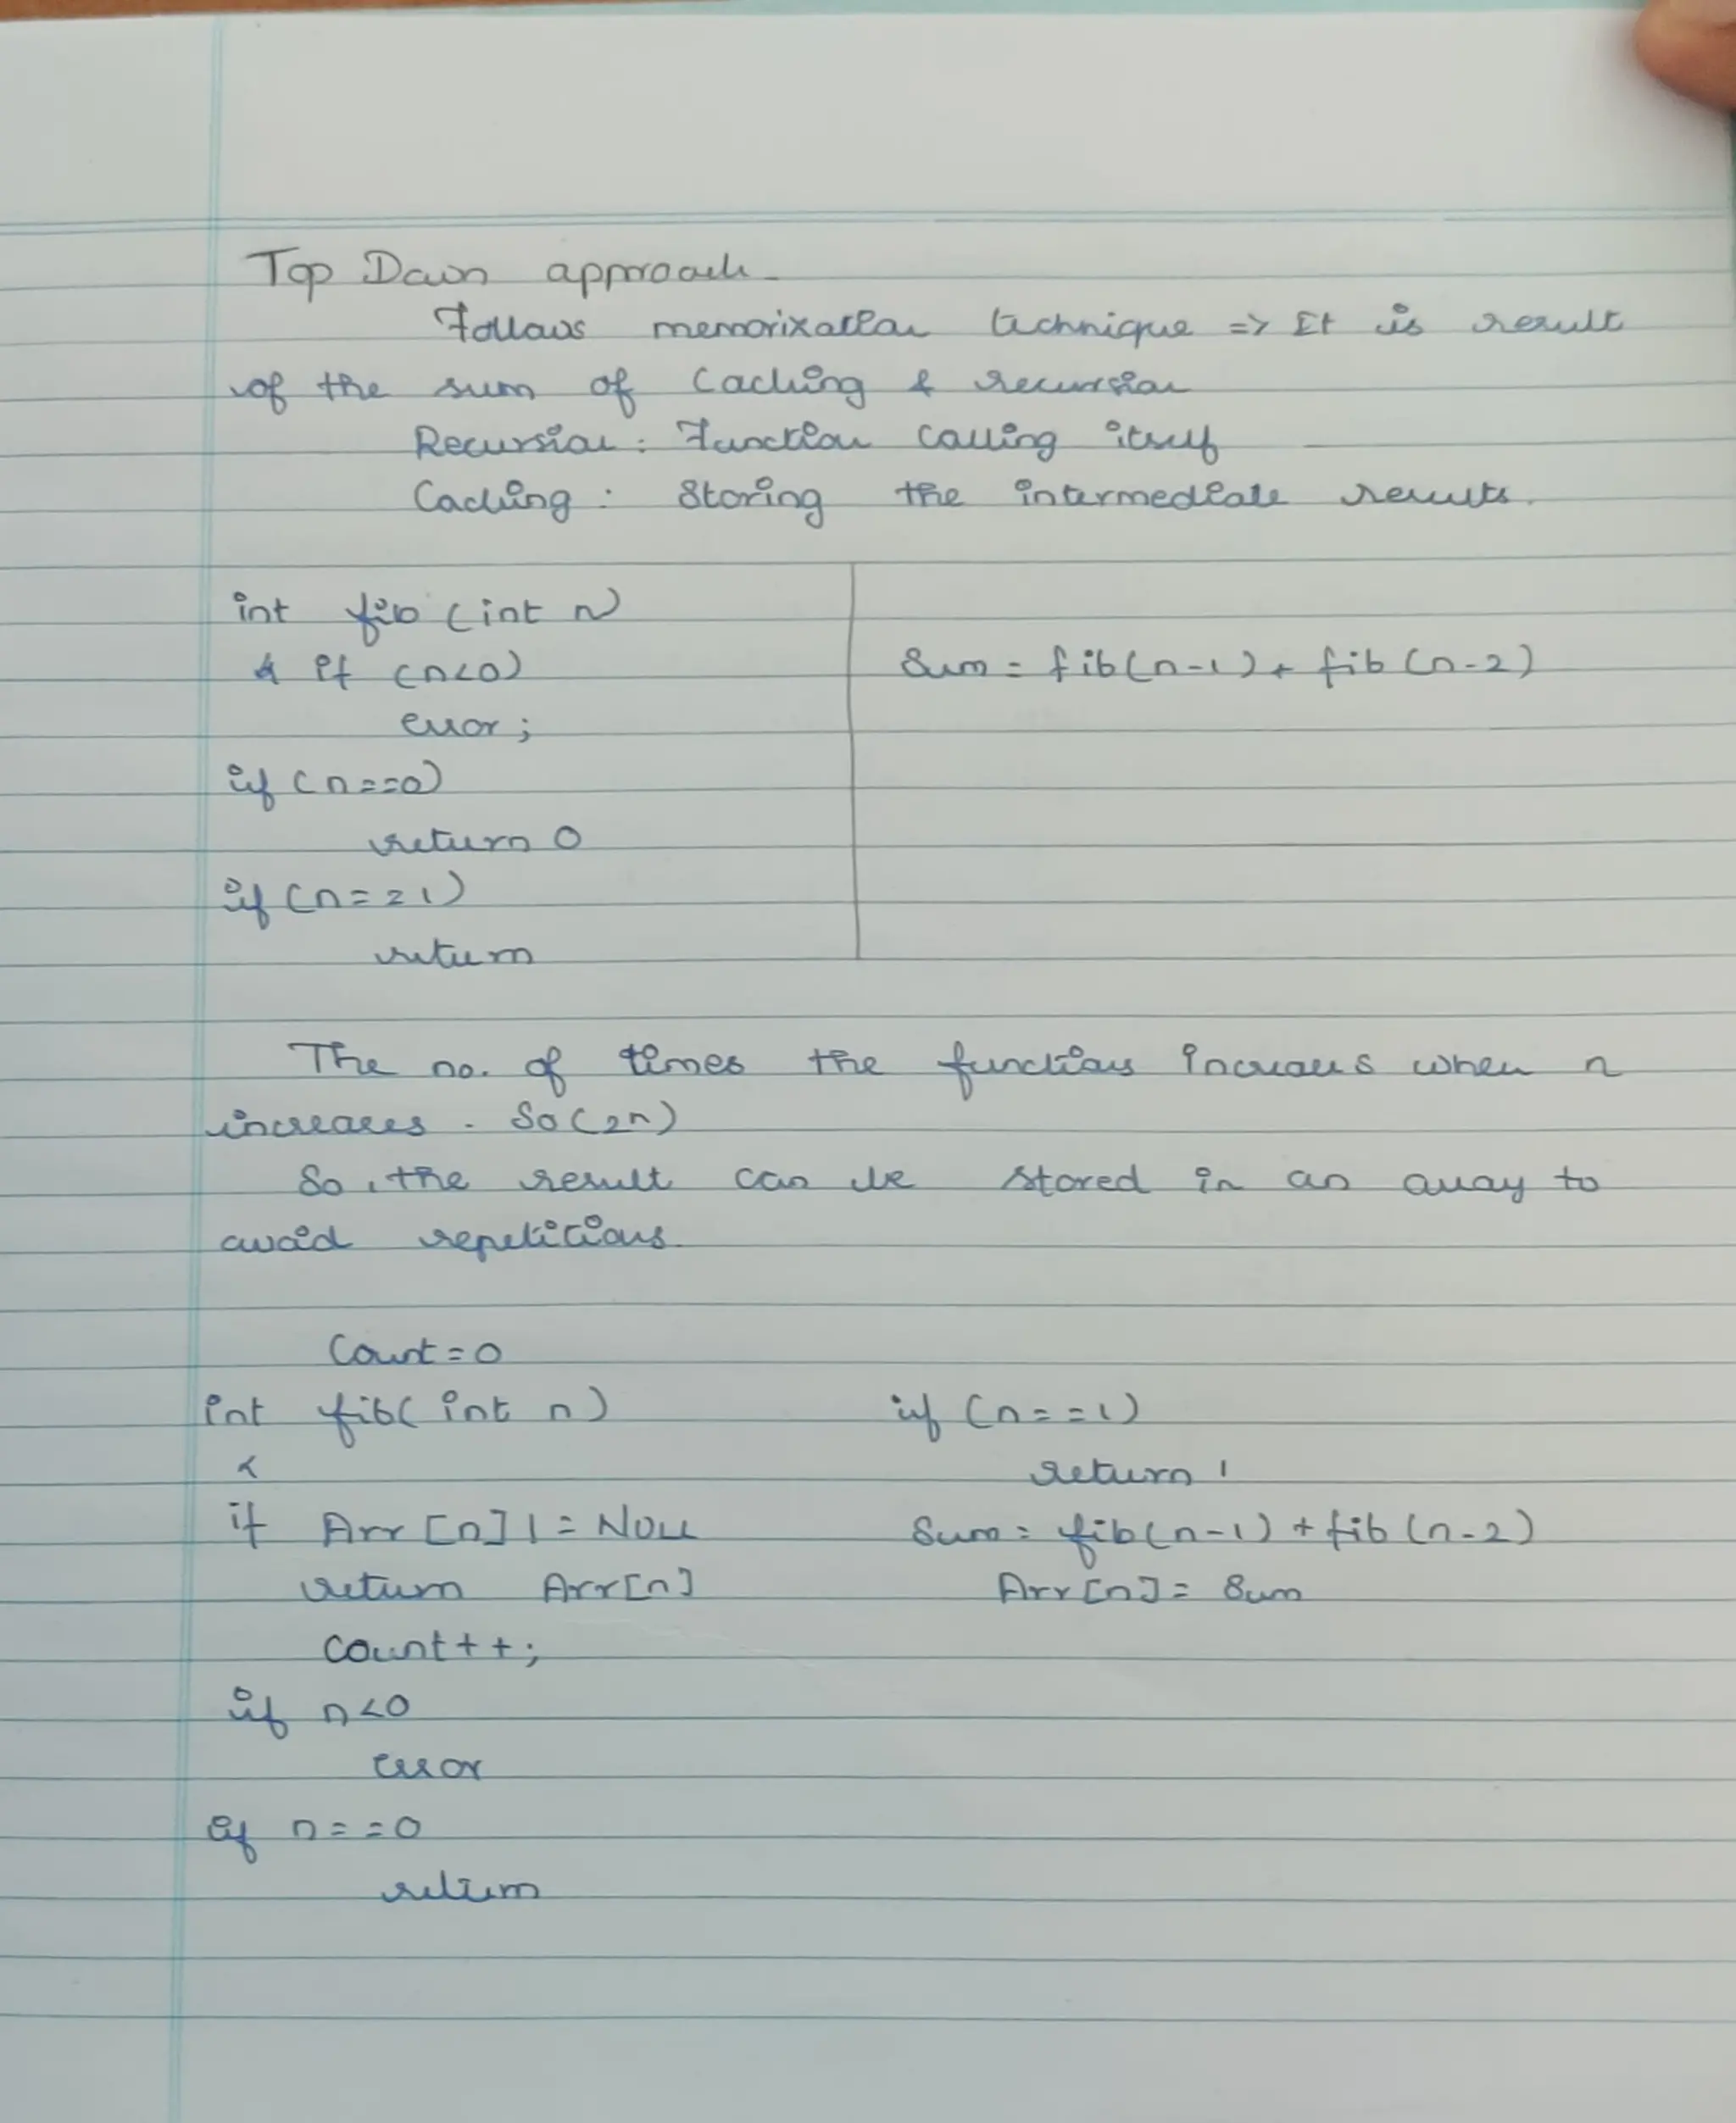 Top Down approach
Follows memorization technique => It is result
of the sum of Caching & recursion
Recursion: Function calling itself
Caching: Storing the intermediate results.
int fib (int n)
{ if (n<0)
error;
if (n==0)
return 0
if (n==1)
return
Sum = fib(n-1) + fib (n-2)
The no. of times the functions increases when n
increases. So (2n)
So, the result can be stored in an array to
avoid repetitions.
Count=0
int fib( int n)
{
if Arr [n] != NULL
return Arr[n]
count++;
if n<0
error
if n==0
return
if (n==1)
return 1
Sum= fib(n-1) + fib (n-2)
Arr [n] = Sum